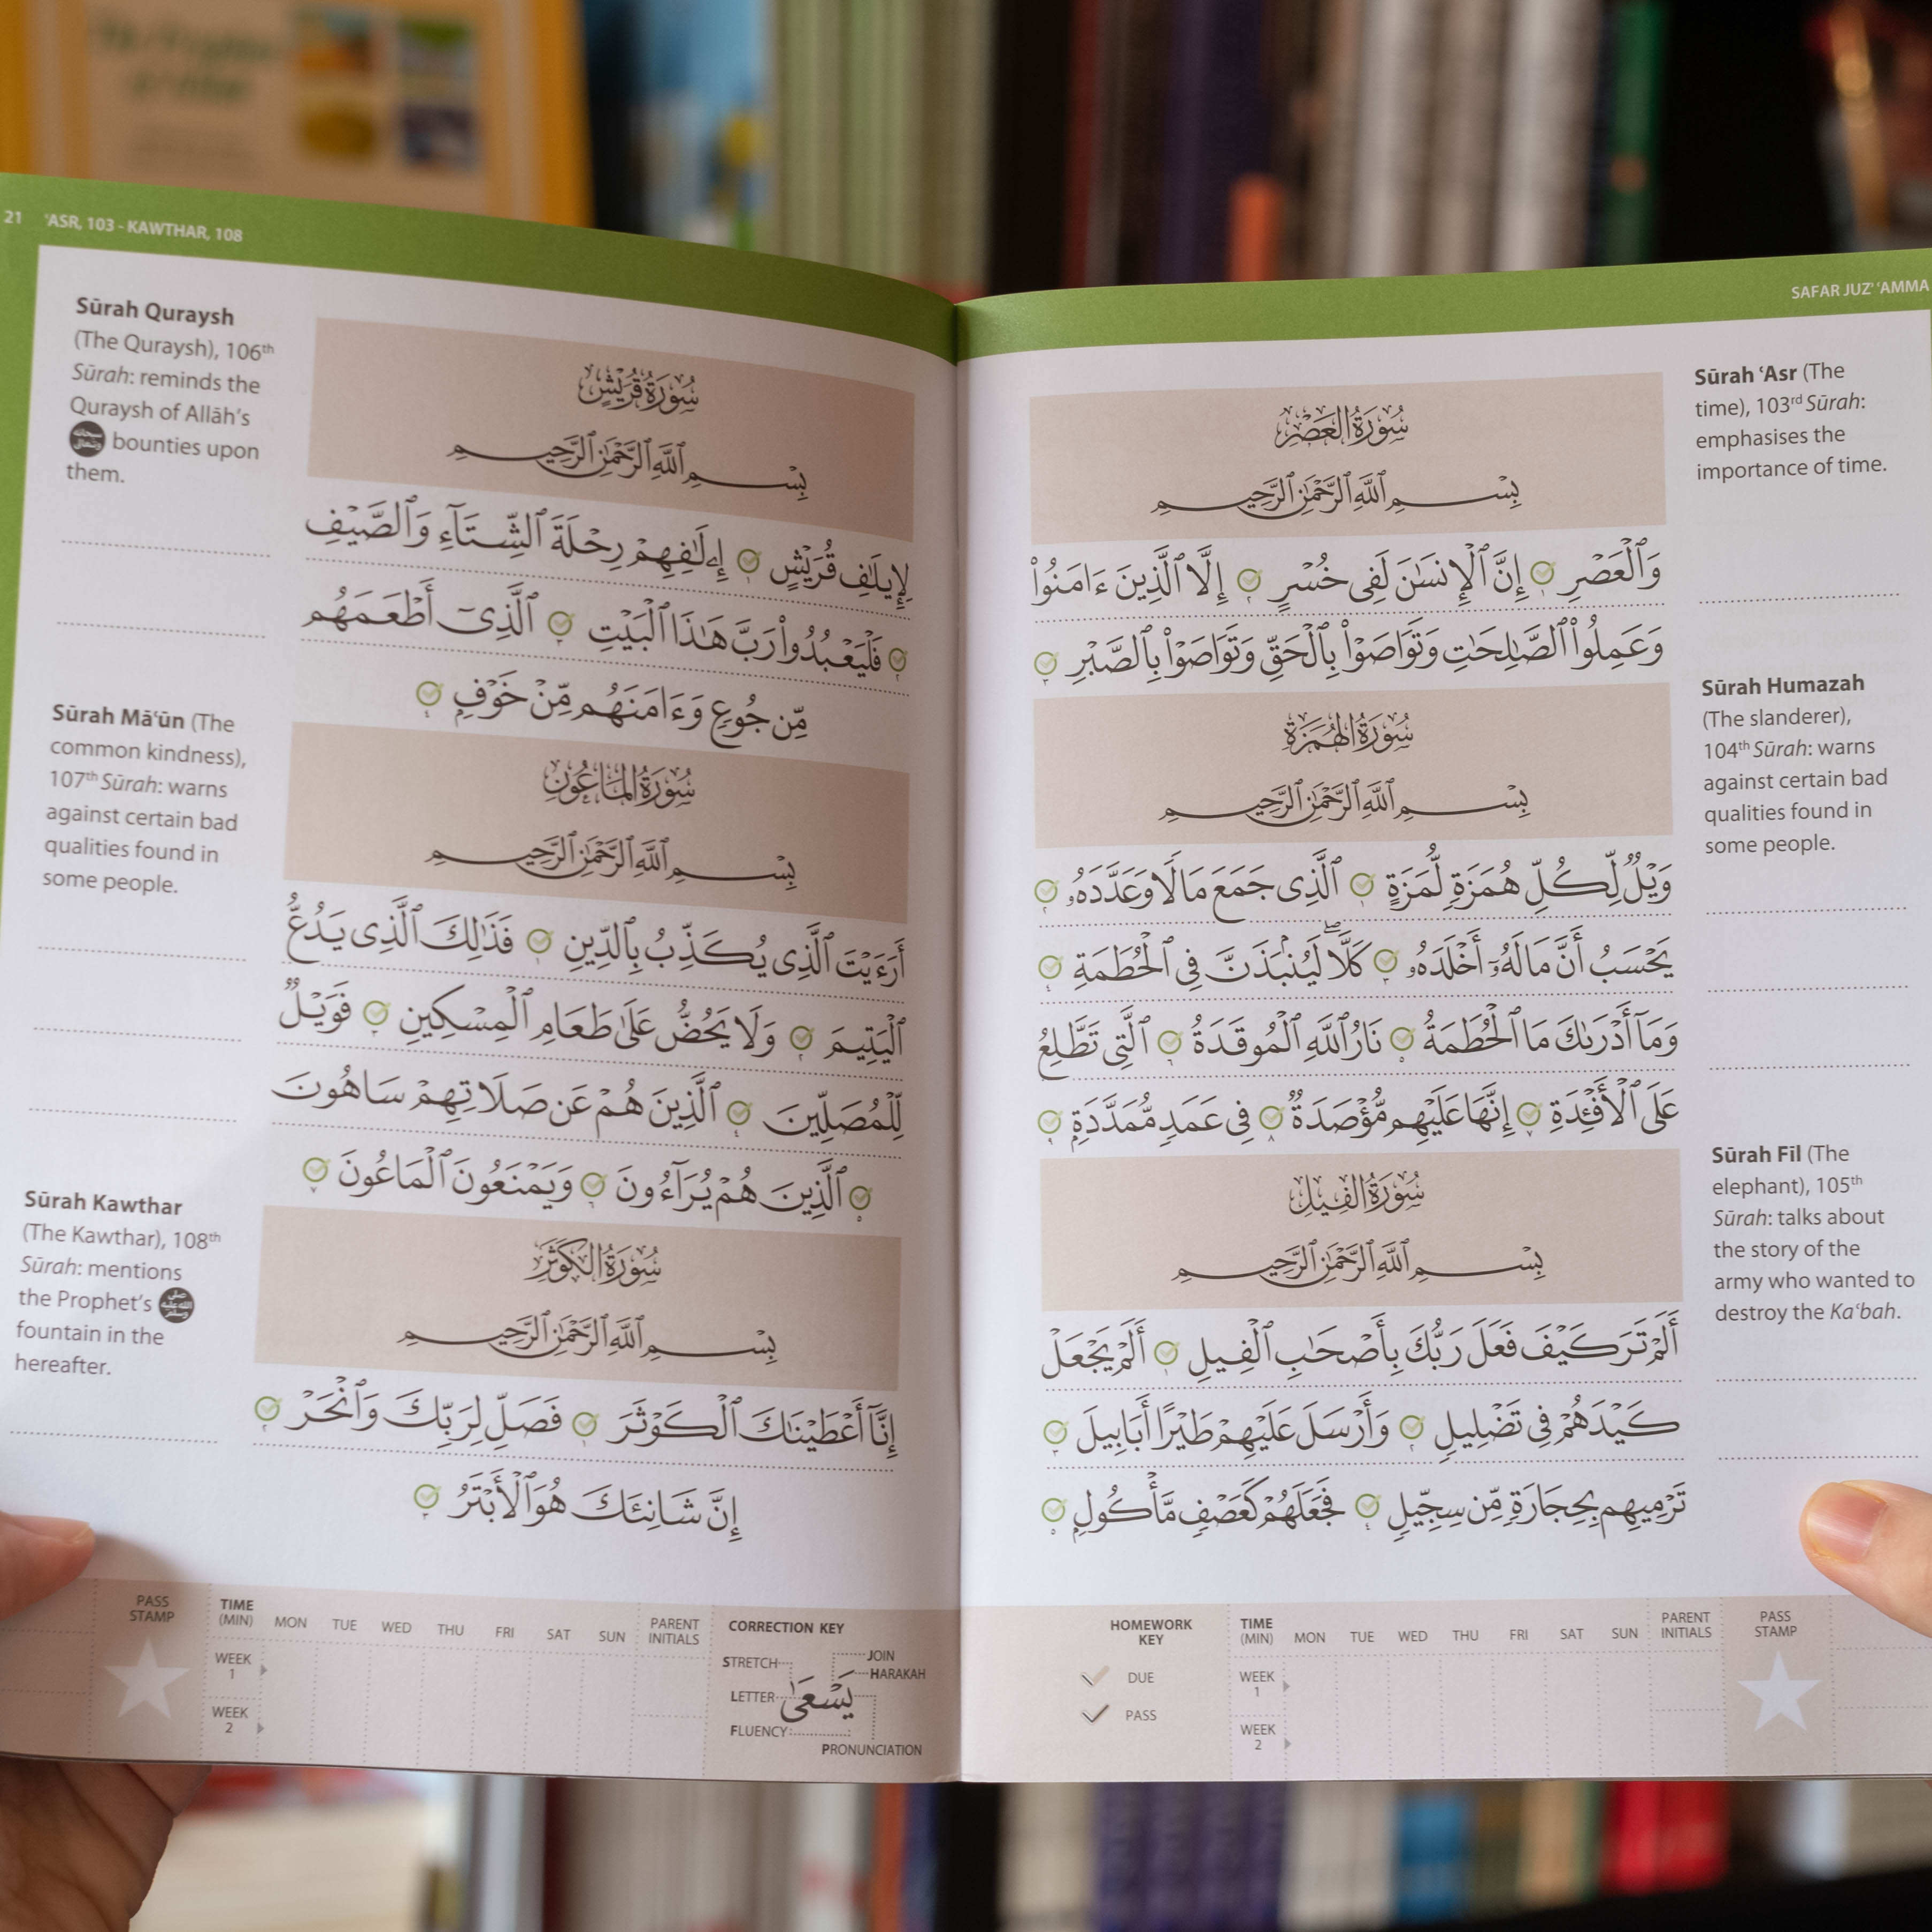 SAFAR JUZ' ‘AMMA
سُورَةُ الْعَصْرِ
بِسْمِ ٱللَّهِ ٱلرَّحْمَٰنِ ٱلرَّحِيمِ
وَٱلْعَصْرِ ١ إِنَّ ٱلْإِنسَٰنَ لَفِى خُسْرٍ ٢ إِلَّا ٱلَّذِينَ ءَامَنُوا۟
وَعَمِلُوا۟ ٱلصَّٰلِحَٰتِ وَتَوَاصَوْا۟ بِٱلْحَقِّ وَتَوَاصَوْا۟ بِٱلصَّبْرِ ٣
Sūrah ‘Asr (The
time), 103rd Sūrah:
emphasises the
importance of time.
سُورَةُ الْهُمَزَةِ
بِسْمِ ٱللَّهِ ٱلرَّحْمَٰنِ ٱلرَّحِيمِ
وَيْلٌ لِّكُلِّ هُمَزَةٍ لُّمَزَةٍ ١ ٱلَّذِى جَمَعَ مَالًا وَعَدَّدَهُۥ ٢
يَحْسَبُ أَنَّ مَالَهُۥٓ أَخْلَدَهُۥ ٣ كَلَّا ۖ لَيُنۢبَذَنَّ فِى ٱلْحُطَمَةِ ٤
وَمَآ أَدْرَىٰكَ مَا ٱلْحُطَمَةُ ٥ نَارُ ٱللَّهِ ٱلْمُوقَدَةُ ٦ ٱلَّتِى تَطَّلِعُ
عَلَى ٱلْأَفْـِٔدَةِ ٧ إِنَّهَا عَلَيْهِم مُّؤْصَدَةٌ ٨ فِى عَمَدٍ مُّمَدَّدَةٍ ٩
Sūrah Humazah
(The slanderer),
104th Sūrah: warns
against certain bad
qualities found in
some people.
سُورَةُ الْفِيلِ
بِسْمِ ٱللَّهِ ٱلرَّحْمَٰنِ ٱلرَّحِيمِ
أَلَمْ تَرَ كَيْفَ فَعَلَ رَبُّكَ بِأَصْحَٰبِ ٱلْفِيلِ ١ أَلَمْ يَجْعَلْ
كَيْدَهُمْ فِى تَضْلِيلٍ ٢ وَأَرْسَلَ عَلَيْهِمْ طَيْرًا أَبَابِيلَ ٣
تَرْمِيهِم بِحِجَارَةٍ مِّن سِجِّيلٍ ٤ فَجَعَلَهُمْ كَعَصْفٍ مَّأْكُولٍ ٥
Sūrah Fīl (The
elephant), 105th
Sūrah: talks about
the story of the
army who wanted to
destroy the Ka‘bah.
HOMEWORK
KEY
DUE
PASS
TIME
(MIN) MON TUE WED THU FRI SAT SUN
PARENT
INITIALS
PASS
STAMP
WEEK
1
WEEK
2
21 ‘ASR, 103 - KAWTHAR, 108
سُورَةُ قُرَيْشٍ
بِسْمِ ٱللَّهِ ٱلرَّحْمَٰنِ ٱلرَّحِيمِ
لِإِيلَٰفِ قُرَيْشٍ ١ إِۦلَٰفِهِمْ رِحْلَةَ ٱلشِّتَآءِ وَٱلصَّيْفِ
٢ فَلْيَعْبُدُوا۟ رَبَّ هَٰذَا ٱلْبَيْتِ ٣ ٱلَّذِىٓ أَطْعَمَهُم
مِّن جُوعٍ وَءَامَنَهُم مِّنْ خَوْفٍ ٤
Sūrah Quraysh
(The Quraysh), 106th
Sūrah: reminds the
Quraysh of Allāh’s
سبحانه وتعالى bounties upon
them.
سُورَةُ الْمَاعُونِ
بِسْمِ ٱللَّهِ ٱلرَّحْمَٰنِ ٱلرَّحِيمِ
أَرَءَيْتَ ٱلَّذِى يُكَذِّبُ بِٱلدِّينِ ١ فَذَٰلِكَ ٱلَّذِى يَدُعُّ
ٱلْيَتِيمَ ٢ وَلَا يَحُضُّ عَلَىٰ طَعَامِ ٱلْمِسْكِينِ ٣ فَوَيْلٌ
لِّلْمُصَلِّينَ ٤ ٱلَّذِينَ هُمْ عَن صَلَاتِهِمْ سَاهُونَ
٥ ٱلَّذِينَ هُمْ يُرَآءُونَ ٦ وَيَمْنَعُونَ ٱلْمَاعُونَ ٧
Sūrah Mā‘ūn (The
common kindness),
107th Sūrah: warns
against certain bad
qualities found in
some people.
سُورَةُ الْكَوْثَرِ
بِسْمِ ٱللَّهِ ٱلرَّحْمَٰنِ ٱلرَّحِيمِ
إِنَّآ أَعْطَيْنَٰكَ ٱلْكَوْثَرَ ١ فَصَلِّ لِرَبِّكَ وَٱنْحَرْ ٢
إِنَّ شَانِئَكَ هُوَ ٱلْأَبْتَرُ ٣
Sūrah Kawthar
(The Kawthar), 108th
Sūrah: mentions
the Prophet’s صلى الله عليه وسلم
fountain in the
hereafter.
PASS
STAMP
TIME
(MIN) MON TUE WED THU FRI SAT SUN
PARENT
INITIALS
WEEK
1
WEEK
2
CORRECTION KEY
STRETCH
JOIN
HARAKAH
LETTER
يَسْعَىٰ
FLUENCY
PRONUNCIATION